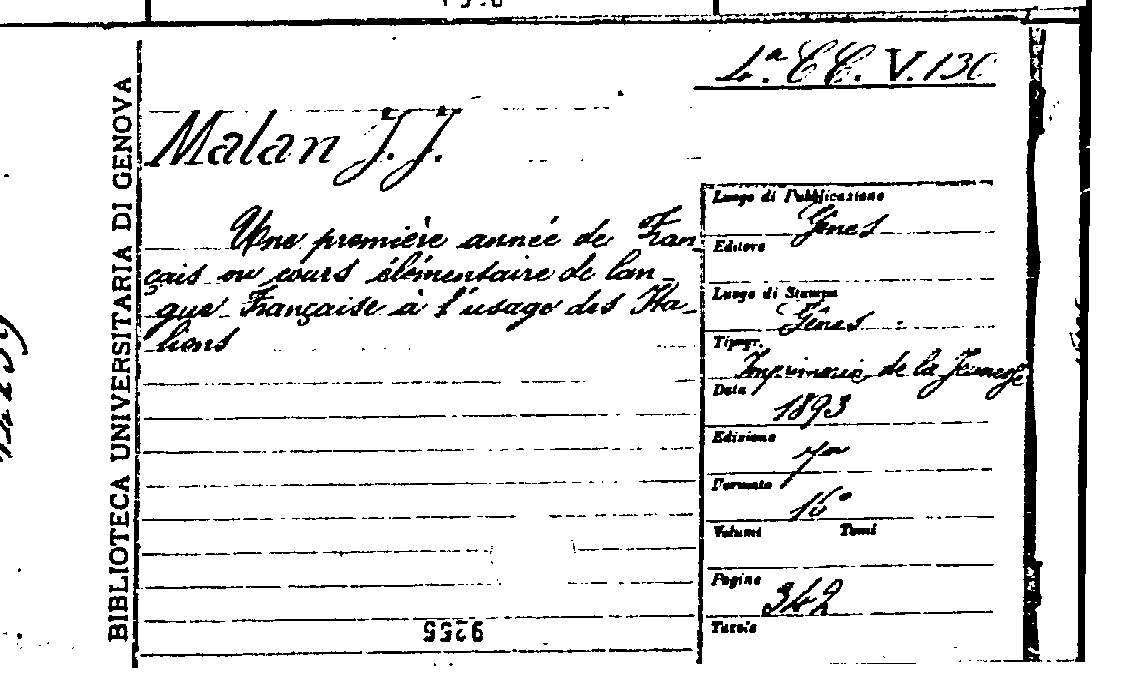 4.ª CC. V. 130
BIBLIOTECA UNIVERSITARIA DI GENOVA
Malan J. J.
Une première année de Fran-
çais ou cours élémentaire de lan-
gue Française à l'usage des Ita-
liens
Luogo di Pubblicazione
Gênes
Editore
Luogo di Stampa
Gênes
Tipogr.
Imprimerie de la Jeunesse
Data
1893
Edizione
7ª
Formato
16°
Volumi Tomi
Pagine
342
Tavole